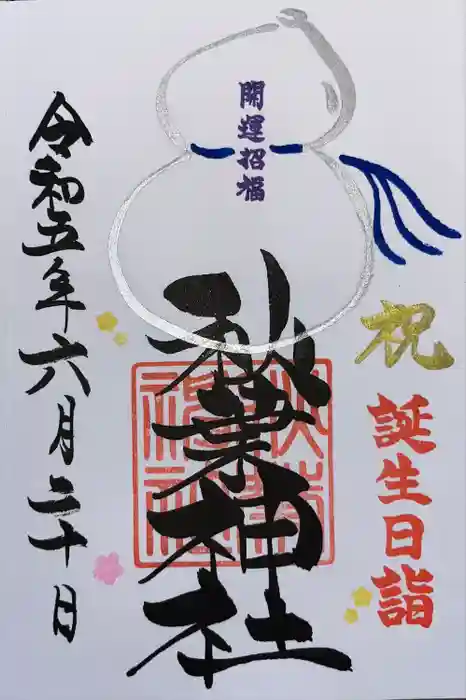 開運招福
祝
誕生日詣
秋葉神社
秋葉神社
令和五年六月二十日